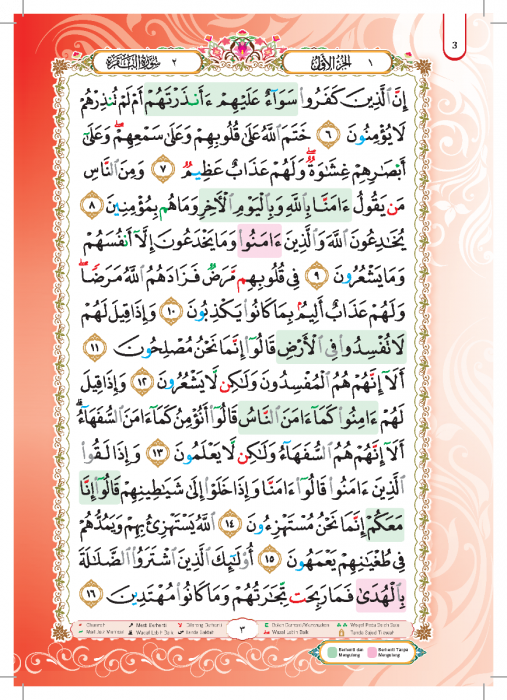 3
سُورَةُ الْبَقَرَة ٢
الجُزْءُ الأَوَّلُ ١
إِنَّ ٱلَّذِينَ كَفَرُوا۟ سَوَآءٌ عَلَيْهِمْ ءَأَنذَرْتَهُمْ أَمْ لَمْ تُنذِرْهُمْ
لَا يُؤْمِنُونَ ٦ خَتَمَ ٱللَّهُ عَلَىٰ قُلُوبِهِمْ وَعَلَىٰ سَمْعِهِمْ ۖ وَعَلَىٰٓ
أَبْصَٰرِهِمْ غِشَٰوَةٌ ۖ وَلَهُمْ عَذَابٌ عَظِيمٌ ٧ وَمِنَ ٱلنَّاسِ
مَن يَقُولُ ءَامَنَّا بِٱللَّهِ وَبِٱلْيَوْمِ ٱلْءَاخِرِ وَمَا هُم بِمُؤْمِنِينَ ٨
يُخَٰدِعُونَ ٱللَّهَ وَٱلَّذِينَ ءَامَنُوا۟ وَمَا يَخْدَعُونَ إِلَّآ أَنفُسَهُمْ
وَمَا يَشْعُرُونَ ٩ فِى قُلُوبِهِم مَّرَضٌ فَزَادَهُمُ ٱللَّهُ مَرَضًا ۖ
وَلَهُمْ عَذَابٌ أَلِيمٌۢ بِمَا كَانُوا۟ يَكْذِبُونَ ١٠ وَإِذَا قِيلَ لَهُمْ
لَا تُفْسِدُوا۟ فِى ٱلْأَرْضِ قَالُوٓا۟ إِنَّمَا نَحْنُ مُصْلِحُونَ ١١
أَلَآ إِنَّهُمْ هُمُ ٱلْمُفْسِدُونَ وَلَٰكِن لَّا يَشْعُرُونَ ١٢ وَإِذَا قِيلَ
لَهُمْ ءَامِنُوا۟ كَمَآ ءَامَنَ ٱلنَّاسُ قَالُوٓا۟ أَنُؤْمِنُ كَمَآ ءَامَنَ ٱلسُّفَهَآءُ ۗ
أَلَآ إِنَّهُمْ هُمُ ٱلسُّفَهَآءُ وَلَٰكِن لَّا يَعْلَمُونَ ١٣ وَإِذَا لَقُوا۟
ٱلَّذِينَ ءَامَنُوا۟ قَالُوٓا۟ ءَامَنَّا وَإِذَا خَلَوْا۟ إِلَىٰ شَيَٰطِينِهِمْ قَالُوٓا۟ إِنَّا
مَعَكُمْ إِنَّمَا نَحْنُ مُسْتَهْزِءُونَ ١٤ ٱللَّهُ يَسْتَهْزِئُ بِهِمْ وَيَمُدُّهُمْ
فِى طُغْيَٰنِهِمْ يَعْمَهُونَ ١٥ أُو۟لَٰٓئِكَ ٱلَّذِينَ ٱشْتَرَوُا۟ ٱلضَّلَٰلَةَ
بِٱلْهُدَىٰ فَمَا رَبِحَت تِّجَٰرَتُهُمْ وَمَا كَانُوا۟ مُهْتَدِينَ ١٦
٣
Berhenti dan Mengulang
Berhenti Tanpa Mengulang